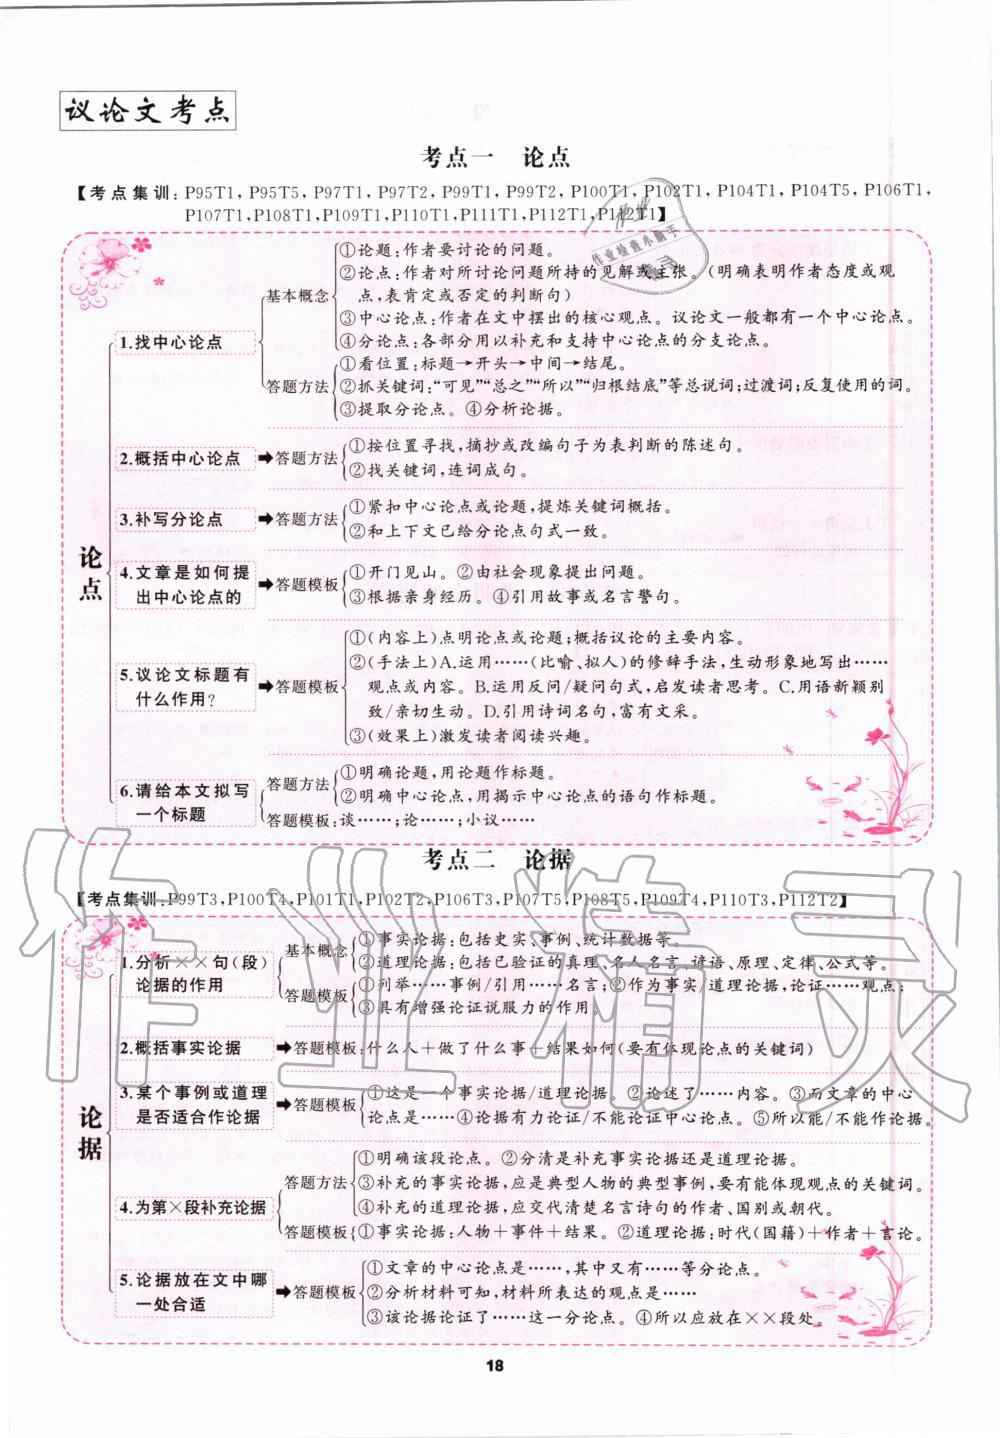 议论文考点
考点一 论点
【考点集训:P95T1,P95T5,P97T1,P97T2,P99T1,P99T2,P100T1,P102T1,P104T1,P104T5,P106T1,
P107T1,P108T1,P109T1,P110T1,P111T1,P112T1,P112T1】
论点
1.找中心论点
基本概念
①论题:作者要讨论的问题。
②论点:作者对所讨论问题所持的见解或主张。(明确表明作者态度或观
点,表肯定或否定的判断句)
③中心论点:作者在文中摆出的核心观点。议论文一般都有一个中心论点。
④分论点:各部分用以补充和支持中心论点的分支论点。
答题方法
①看位置:标题→开头→中间→结尾。
②抓关键词:“可见”“总之”“所以”“归根结底”等总说词;过渡词;反复使用的词。
③提取分论点。④分析论据。
2.概括中心论点
➡答题方法
①按位置寻找,摘抄或改编句子为表判断的陈述句。
②找关键词,连词成句。
3.补写分论点
➡答题方法
①紧扣中心论点或论题,提炼关键词概括。
②和上下文已给分论点句式一致。
4.文章是如何提
出中心论点的
➡答题模板
①开门见山。②由社会现象提出问题。
③根据亲身经历。④引用故事或名言警句。
5.议论文标题有
什么作用?
➡答题模板
①(内容上)点明论点或论题;概括议论的主要内容。
②(手法上)A.运用……(比喻、拟人)的修辞手法,生动形象地写出……
观点或内容。B.运用反问/疑问句式,启发读者思考。C.用语新颖别
致/亲切生动。D.引用诗词名句,富有文采。
③(效果上)激发读者阅读兴趣。
6.请给本文拟写
一个标题
答题方法
①明确论题,用论题作标题。
②明确中心论点,用揭示中心论点的语句作标题。
答题模板:谈……;论……;小议……
考点二 论据
【考点集训:P99T3,P100T4,P101T1,P102T2,P106T3,P107T5,P108T5,P109T4,P110T3,P112T2】
论据
1.分析××句(段)
论据的作用
基本概念
①事实论据:包括史实、事例、统计数据等。
②道理论据:包括已验证的真理、名人名言、谚语、原理、定律、公式等。
答题模板
①列举……事例/引用……名言;②作为事实/道理论据,论证……观点;
③具有增强论证说服力的作用。
2.概括事实论据
➡答题模板:什么人+做了什么事+结果如何(要有体现论点的关键词)
3.某个事例或道理
是否适合作论据
➡答题模板
①这是一个事实论据/道理论据。②论述了……内容。③而文章的中心
论点是……④论据有力论证/不能论证中心论点。⑤所以能/不能作论据。
4.为第×段补充论据
答题方法
①明确该段论点。②分清是补充事实论据还是道理论据。
③补充的事实论据,应是典型人物的典型事例,要有能体现观点的关键词。
④补充的道理论据,应交代清楚名言诗句的作者、国别或朝代。
答题模板
①事实论据:人物+事件+结果。②道理论据:时代(国籍)+作者+言论。
5.论据放在文中哪
一处合适
➡答题模板
①文章的中心论点是……,其中又有……等分论点。
②分析材料可知,材料所表达的观点是……
③该论据论证了……这一分论点。④所以应放在××段处。
18
作业精灵
作业检查小助手